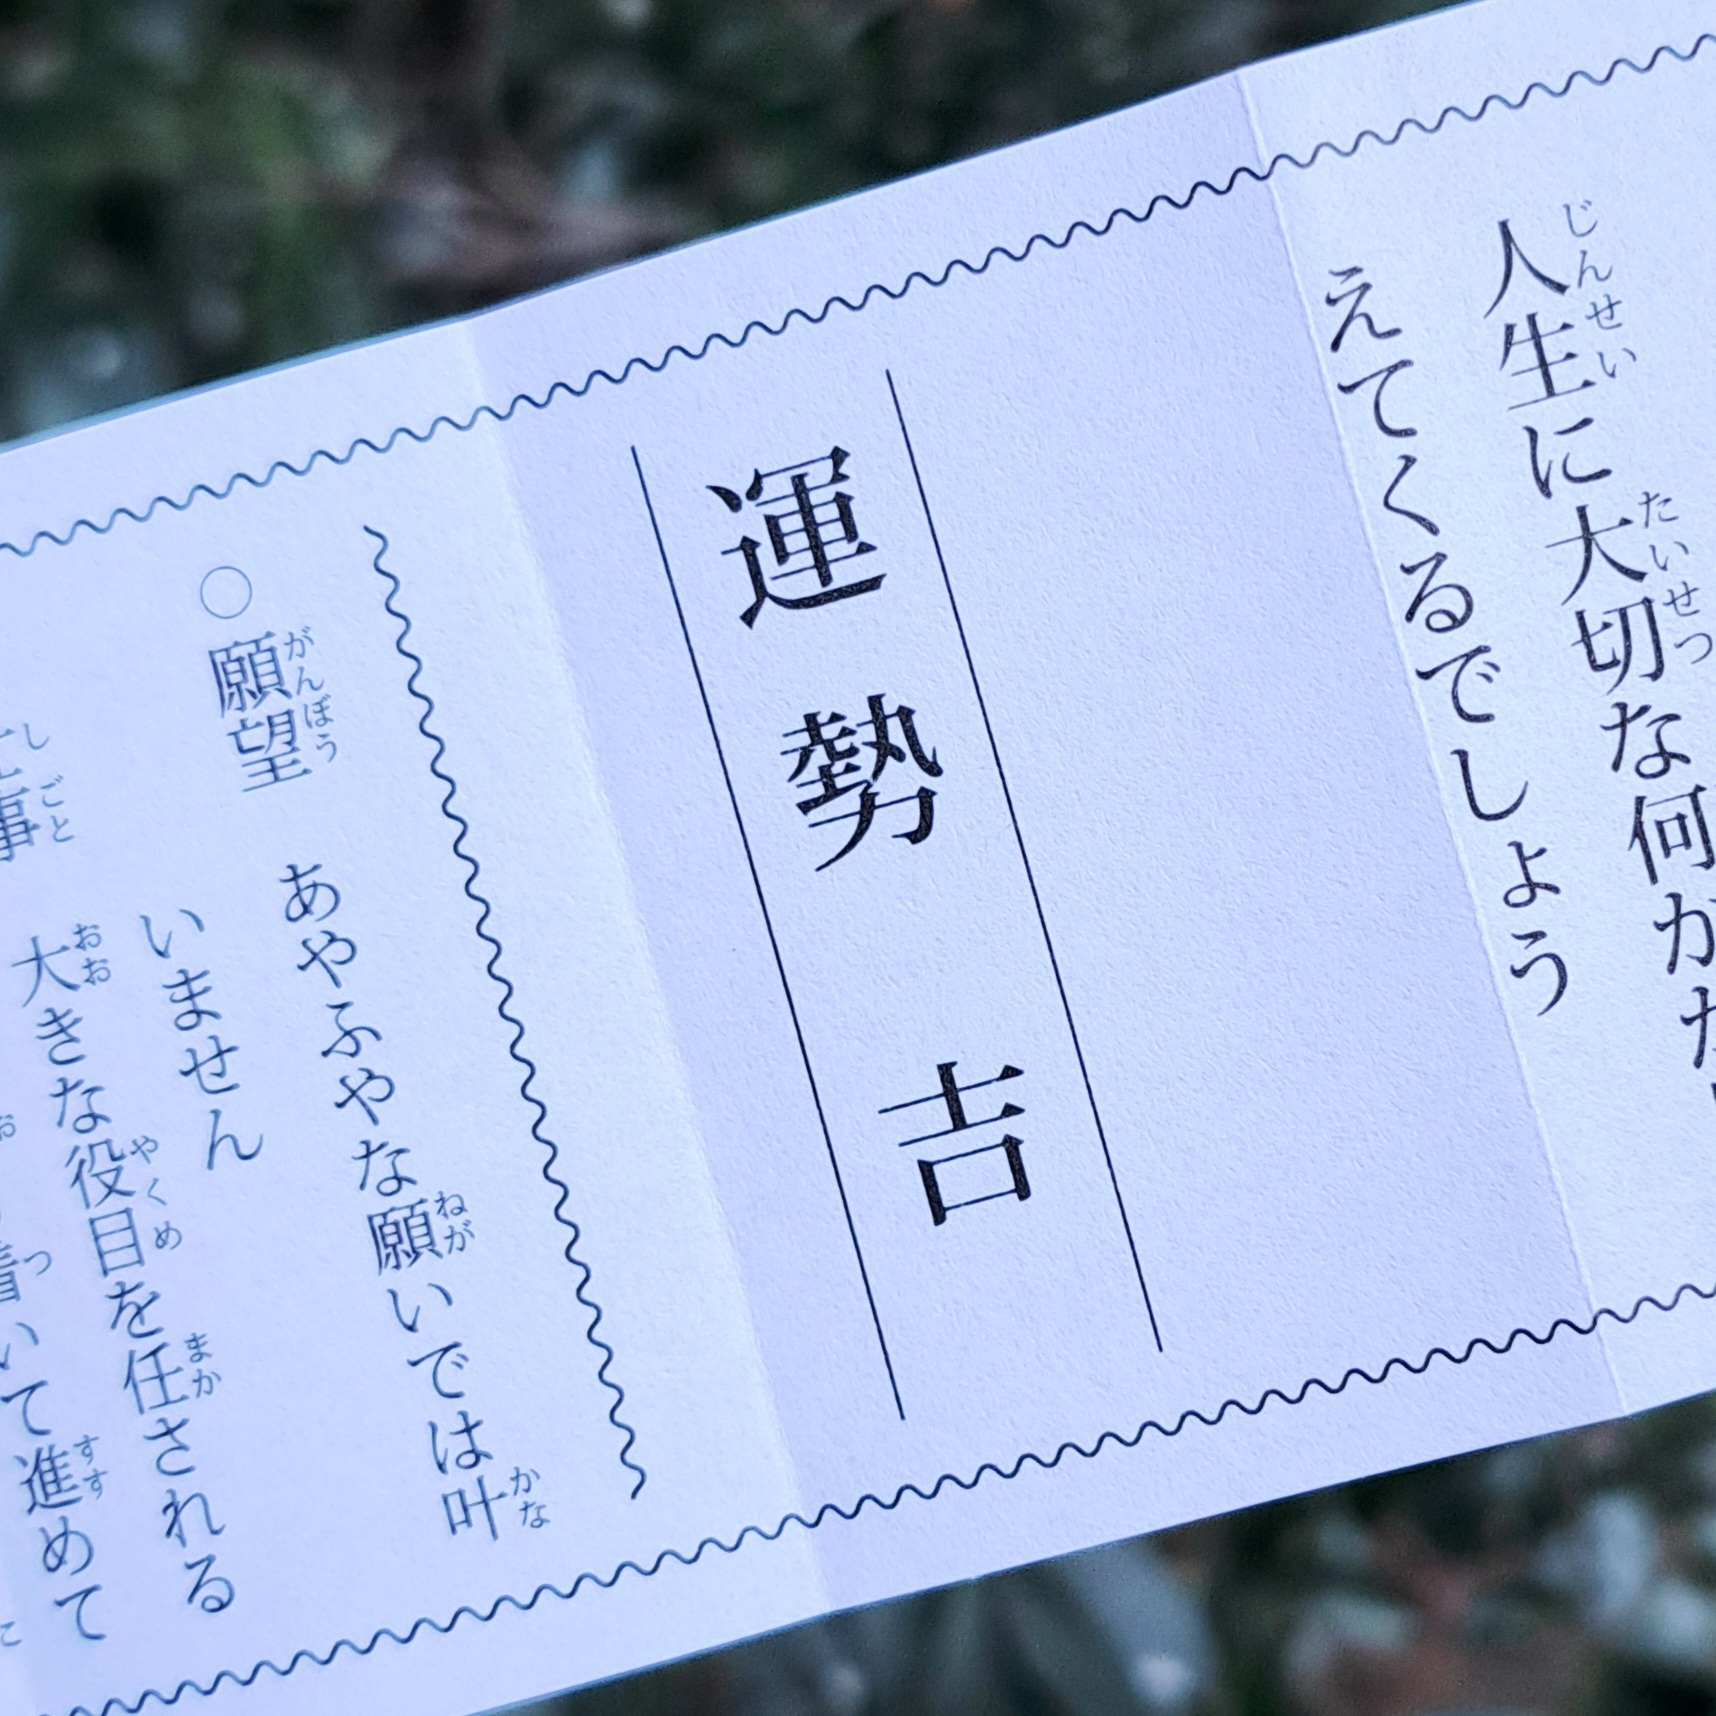 人生に大切な何か
えてくるでしょう
運勢 吉
○願望 あやふやな願いでは叶
いません
仕事 大きな役目を任される
着いて進めて